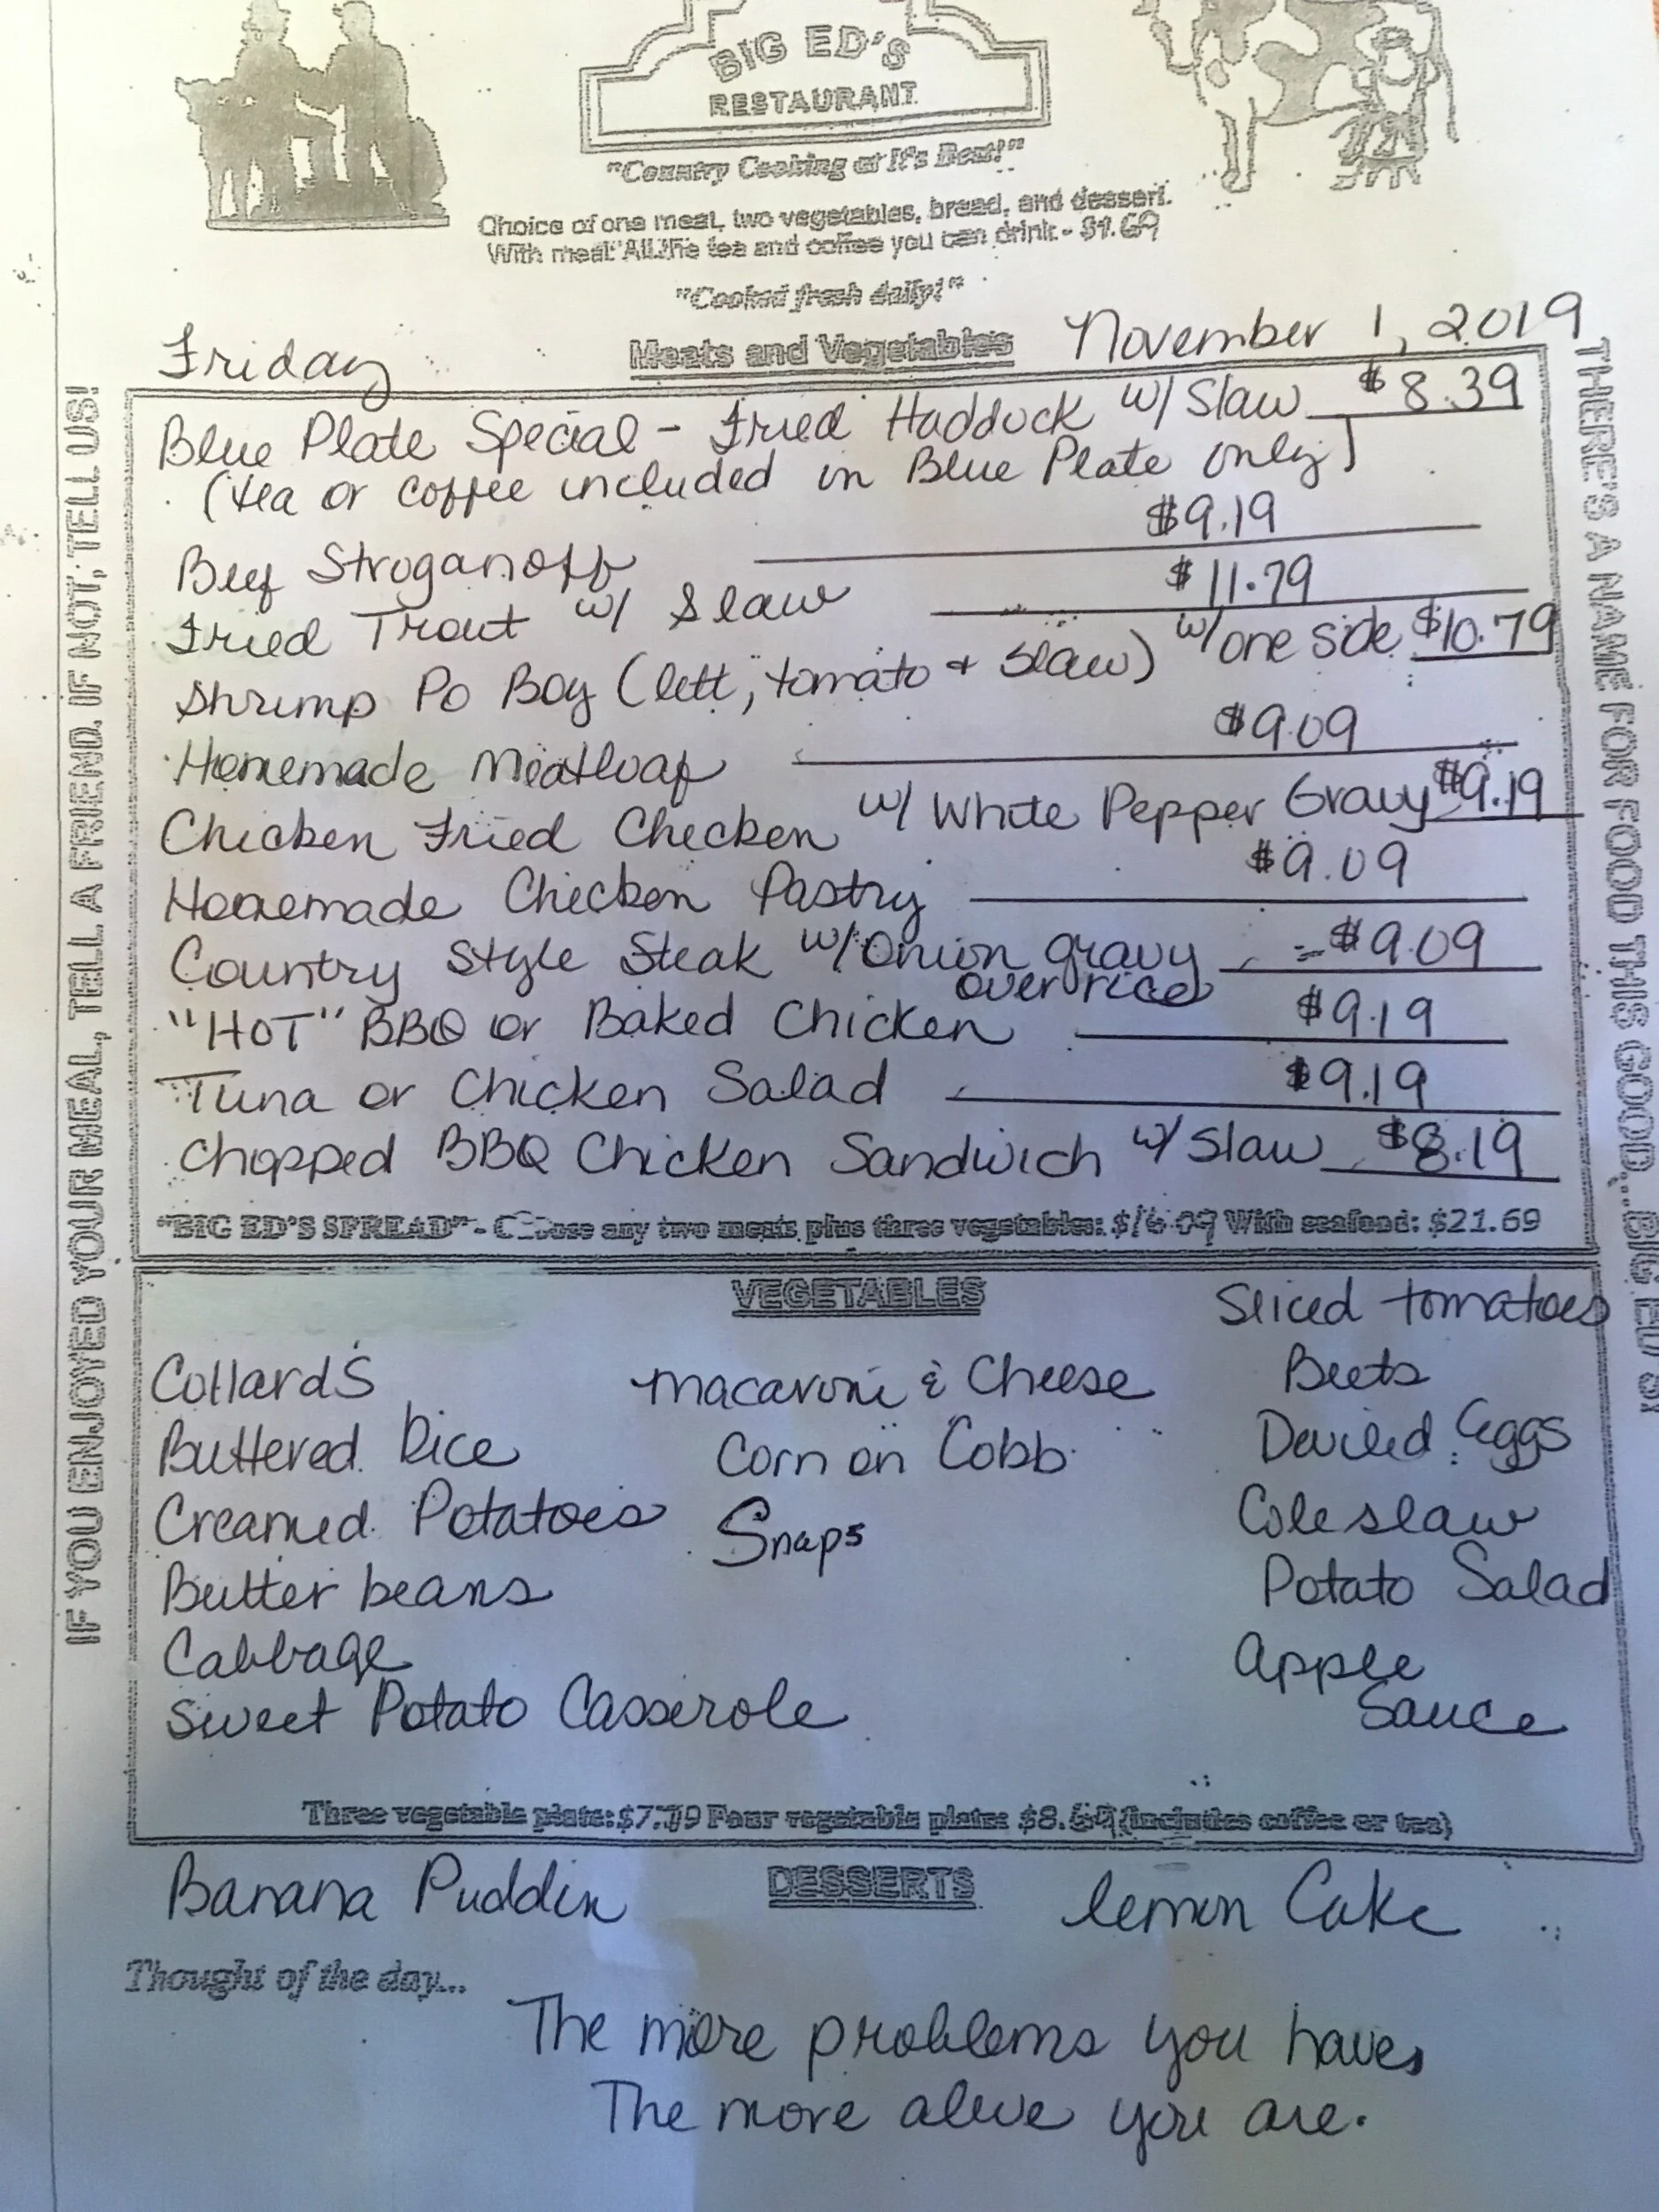 BIG ED'S
RESTAURANT
"Country Cooking at It's Best!"
Choice of one meat, two vegetables, bread, and dessert.
With meal "All the tea and coffee you can drink - $1.69
"Cooked fresh daily!"
Friday Meats and Vegetables November 1, 2019
Blue Plate Special - Fried Hadduck w/ Slaw $8.39
(tea or coffee included in Blue Plate only)
Beef Stroganoff $9.19
Fried Trout w/ Slaw $11.79
Shrimp Po Boy (lett, tomato + Slaw) w/ one side $10.79
Homemade Meatloaf $9.09
Chicken Fried Checken w/ White Pepper Gravy $9.19
Homemade Chicken Pastry $9.09
Country Style Steak w/ Onion gravy $9.09
over rice
"HOT" BBQ or Baked Chicken $9.19
Tuna or Chicken Salad $9.19
Chopped BBQ Chicken Sandwich w/ Slaw $8.19
"BIG ED'S SPREAD" - Choose any two meats plus three vegetables: $16.09 With seafood: $21.69
VEGETABLES
Collards
Buttered Rice
Creamed Potatoes
Butter beans
Cabbage
Sweet Potato Casserole
Macaroni & Cheese
Corn on Cobb
Snaps
Sliced tomatoes
Beets
Deviled Eggs
Cole slaw
Potato Salad
Apple
Sauce
Three vegetable plate: $7.79 Four vegetable plate: $8.69 (includes coffee or tea)
DESSERTS
Banana Puddin
lemon Cake
Thought of the day...
The more problems you have,
The more alive you are.
IF YOU ENJOYED YOUR MEAL, TELL A FRIEND. IF NOT, TELL US!
THERE'S A NAME FOR FOOD THIS GOOD,...BIG ED'S!